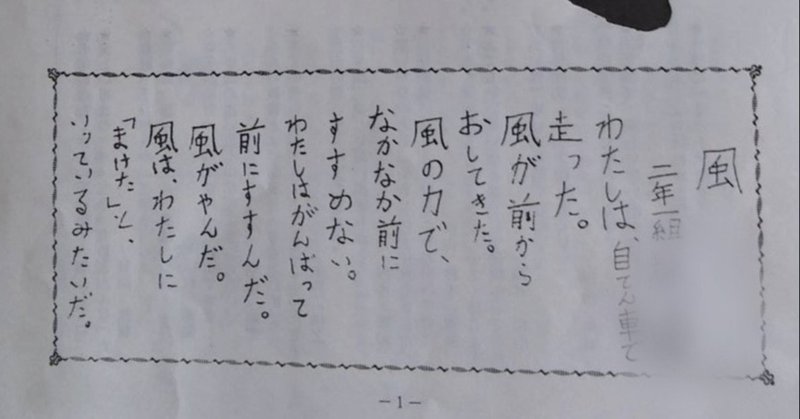 風
二年一組
わたしは、自てん車で
走った。
風が前から
おしてきた。
風の力で、
なかなか前に
すすめない。
わたしはがんばって
前にすすんだ。
風がやんだ。
風は、わたしに
「まけた」と、
いっているみたいだ。
-1-